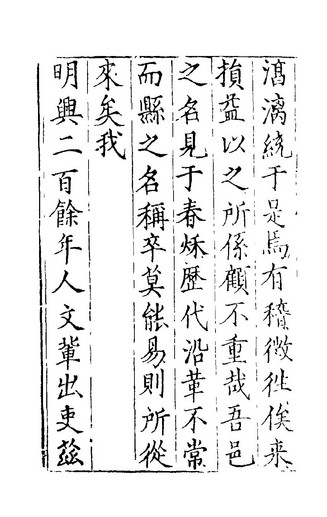 澆漓統于是焉有稽徴徃俟来
損益以之所係顧不重哉吾邑
之名見于春秌歷代沿革不常
而縣之名稱卒莫能易則所從
來矣我
明興二百餘年人文軰出吏兹